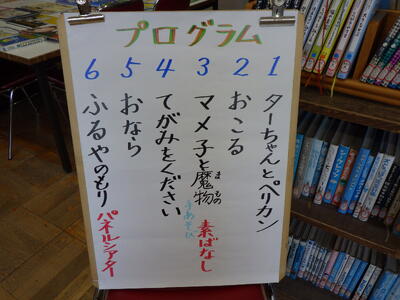 プログラム
1 ターちゃんとペリカン
2 おこる
3 マメ子と魔物 素ばなし
まもの
4 てがみをください
手あそび
5 おなら
6 ふるやのもり パネルシアター